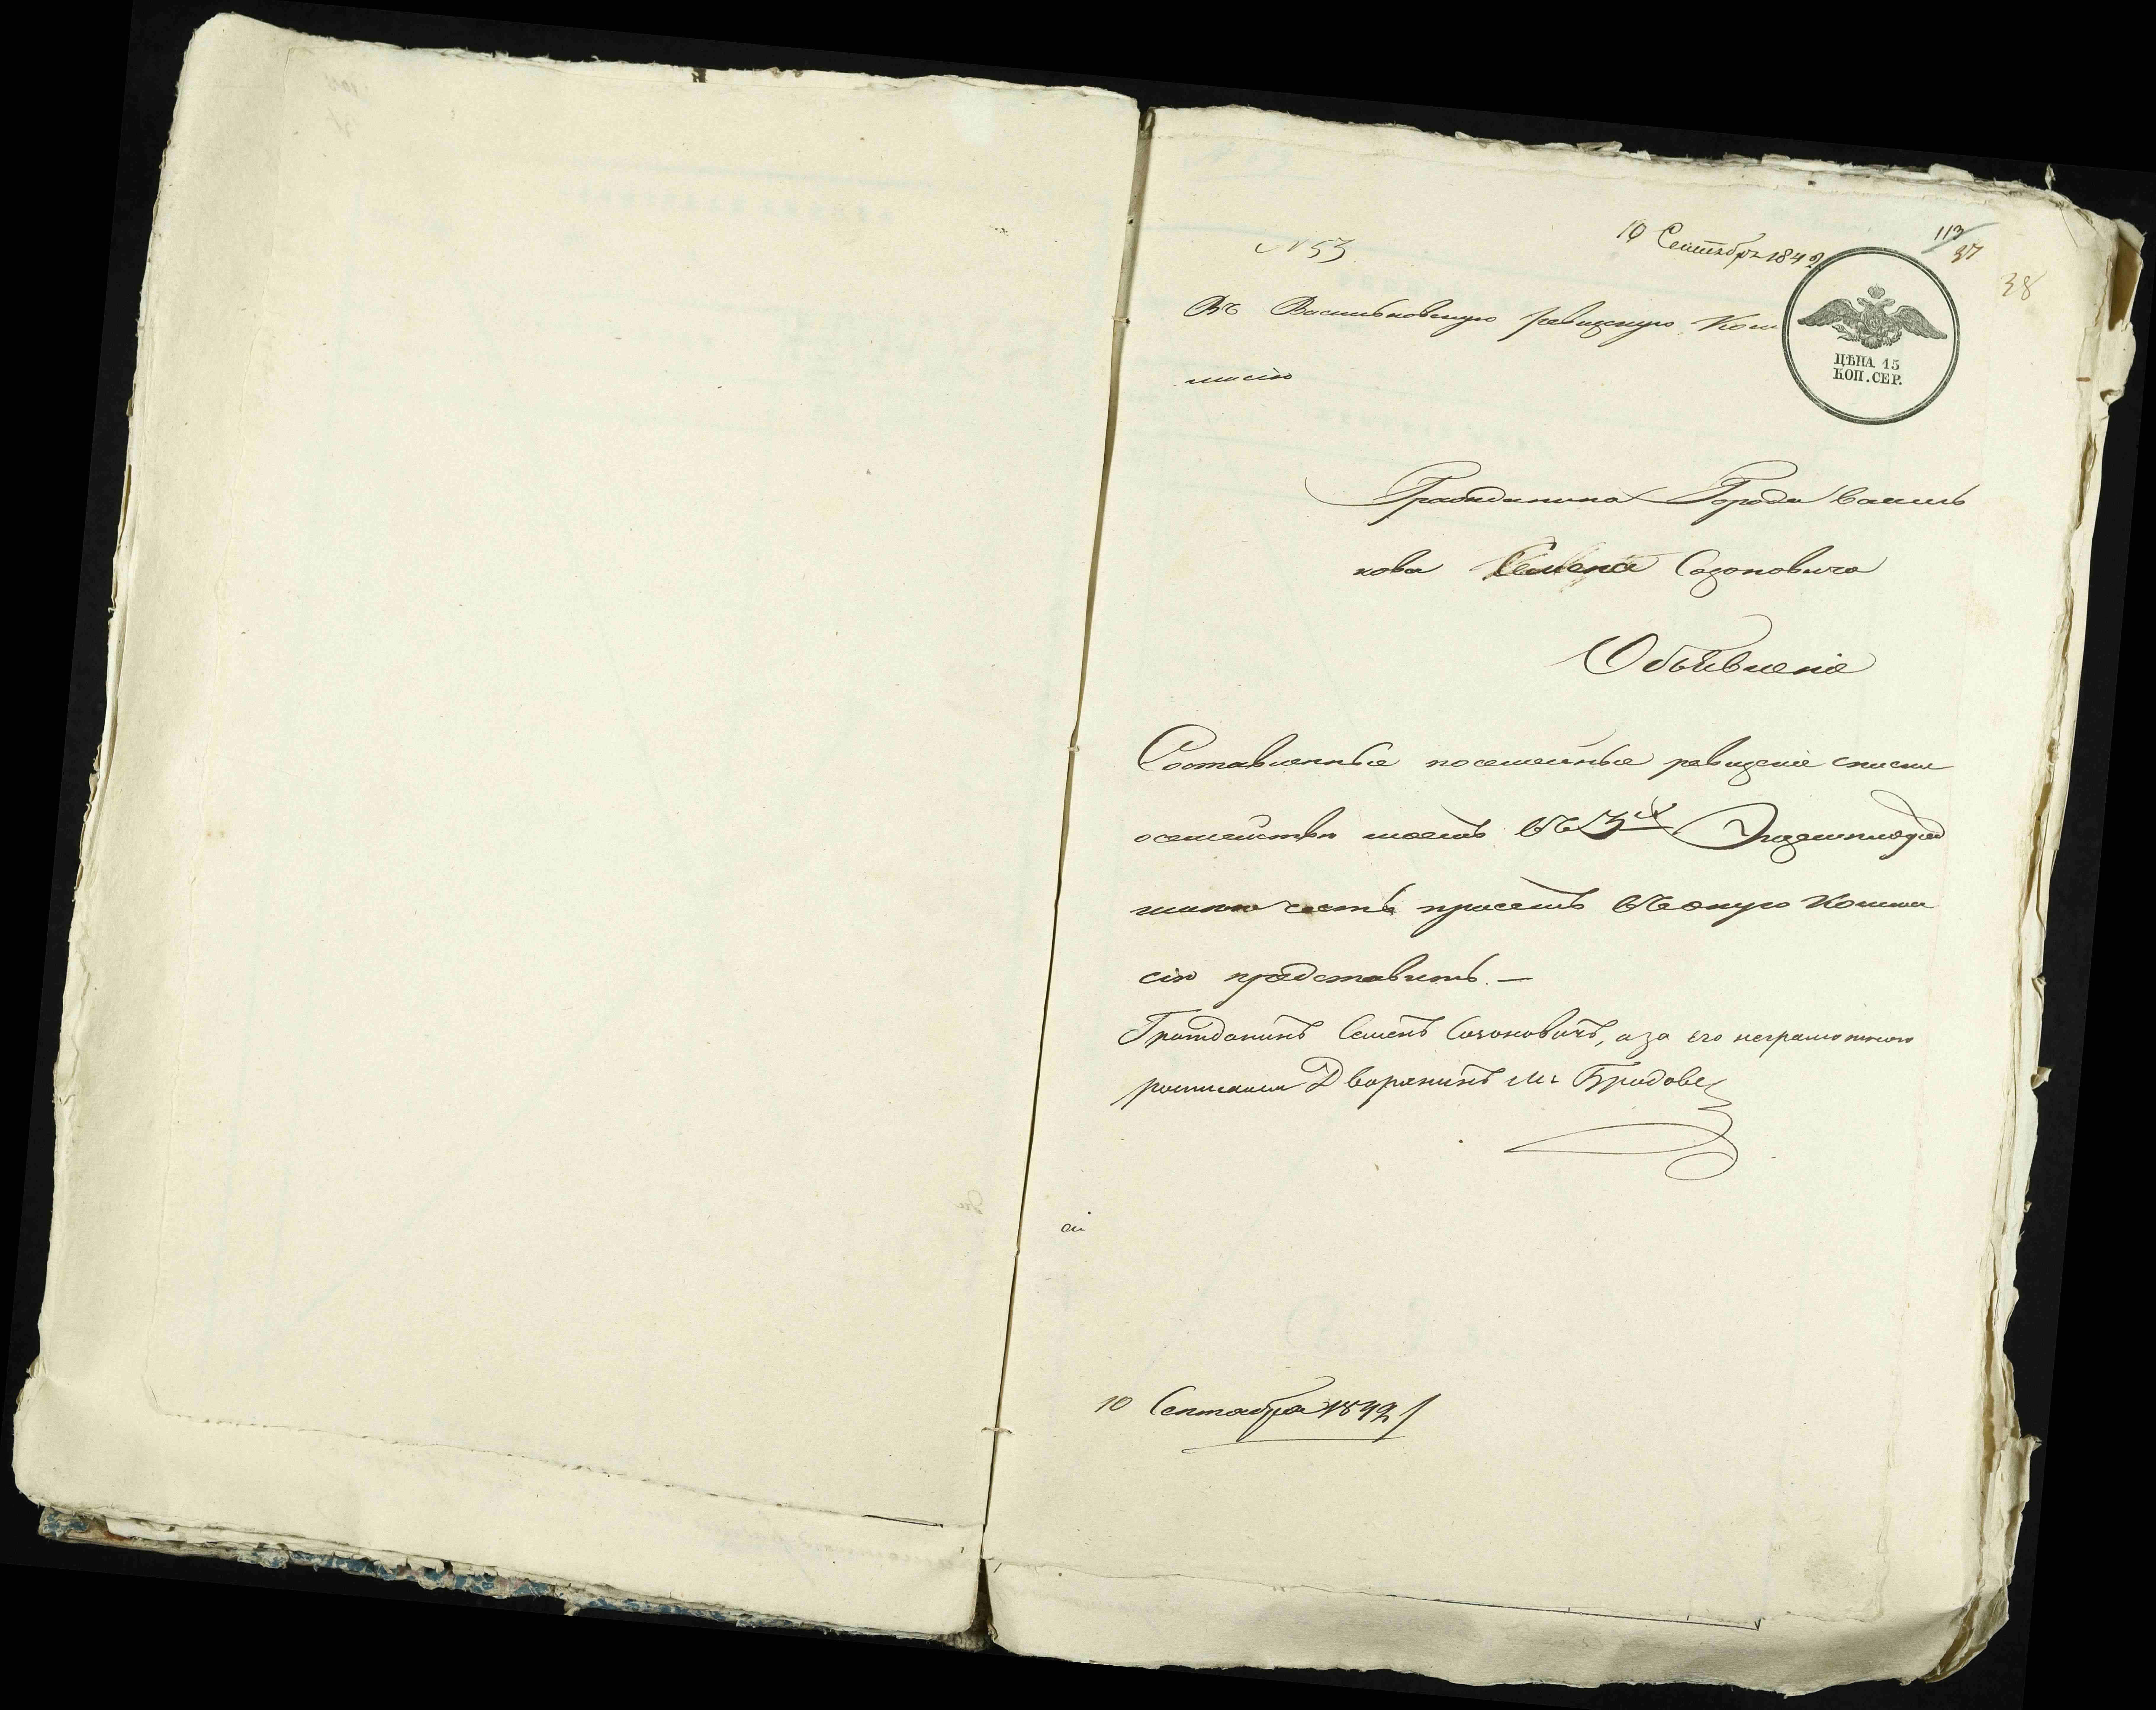 № 53
10 Сентября 1842
113
37
38
Въ Васильковскую ревизскую Ком
мисію
ЦѢНА 15
КОП. СЕР.
Гражданина Города Василь
кова Семена Созоновича
Объявленіе
Составленные посемейные ревизскіе списки
осемействѣ моемъ въ 3х Экземплярах
имею честь присемъ въоную Комми
сію представить. —
Гражданинъ Семенъ Созоновичъ, а за его неграмотного
росписался Дворянинъ М. Бродове
10 Сентября 1842